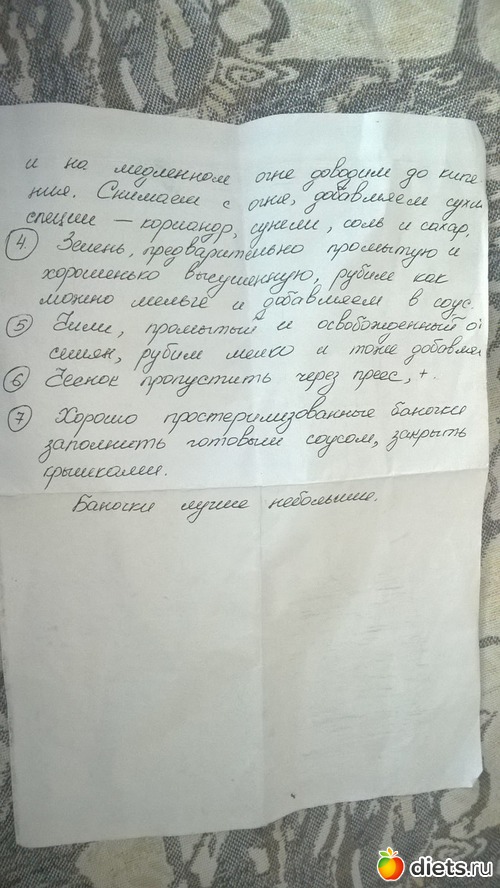 и на медленном огне доводим до кипе
ния. Снимаем с огня, добавляем сухие
специи — кориандр, сунели, соль и сахар.
4. Зелень, предварительно промытую и
хорошенько высушенную, рубим как
можно мельче и добавляем в соус.
5 Чили, промытый и освобожденный от
семян, рубим мелко и тоже добавляем
6 Чеснок пропустить через пресс, +.
7 Хорошо простерилизованные баночки
заполнить готовым соусом, закрыть
крышками.
Баночки лучше небольшие.
diets.ru